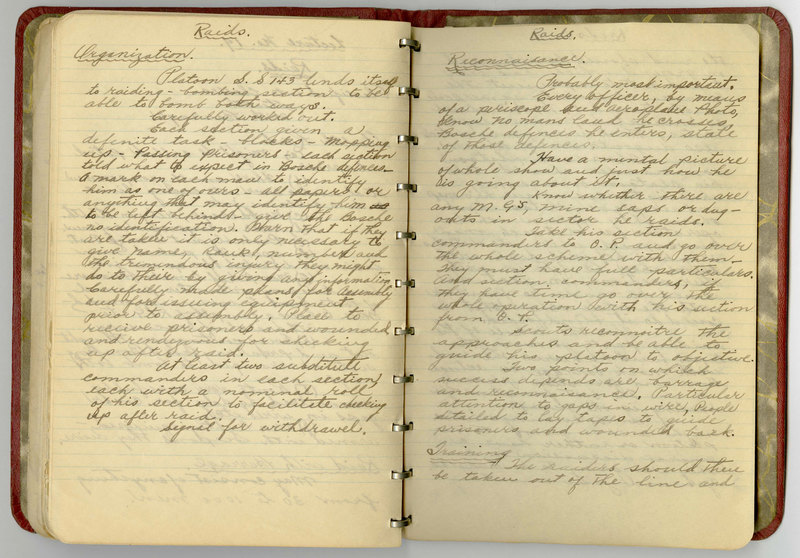 Raids.
Organization.
Platoon S.S 143 lends itself
to raiding - bombing section to be
able to bomb both ways.
Carefully worked out.
Each section given a
definite task - blocks - mopping
up - Passing prisoners - each section
told what to expect in Bosche defences -
A mark on each man to identify
him as one of ours - all papers or
anything that may identify him
to be left behind - give the Bosche
no identification. Warn that if they
are taken it is only necessary to
give name, rank, number and
the tremendous injury they might
do to their by giving any information.
Carefully made plans for assembly
and for issuing equipment
prior to assembly. Place to
receive prisoners and wounded
and rendezvous for checking
up after raid.
At least two substitute
commanders in each section,
each with a nominal roll
of his section to facilitate checking
up after raid.
Signal for withdrawel.
Raids.
Reconnaisance.
Probably most important.
Every officer, by means
of a priscope and aeroplane Photo,
know no mans land he crosses,
Bosche defences he enters, state
of those defences.
Have a mental picture
of whole show and just how he
is going about it.
Know whether there are
any M.GS, mine saps or dug-
outs in sector he raids.
Take his section
commanders to O.P. and go over
the whole scheme with them -
They must have full particulars.
And section commanders, if
they have time go over the
whole operation with his section
from O.P.
Scouts reconnoitre the
approaches and be able to
guide his platoon to objective.
Two points on which
success depends are barrage
and reconnaisance. Particular
attention to gaps in wire, People
detailed to lay tapes to guide
prisoners and wounded back.
Training
The raiders should then
be taken out of the line and